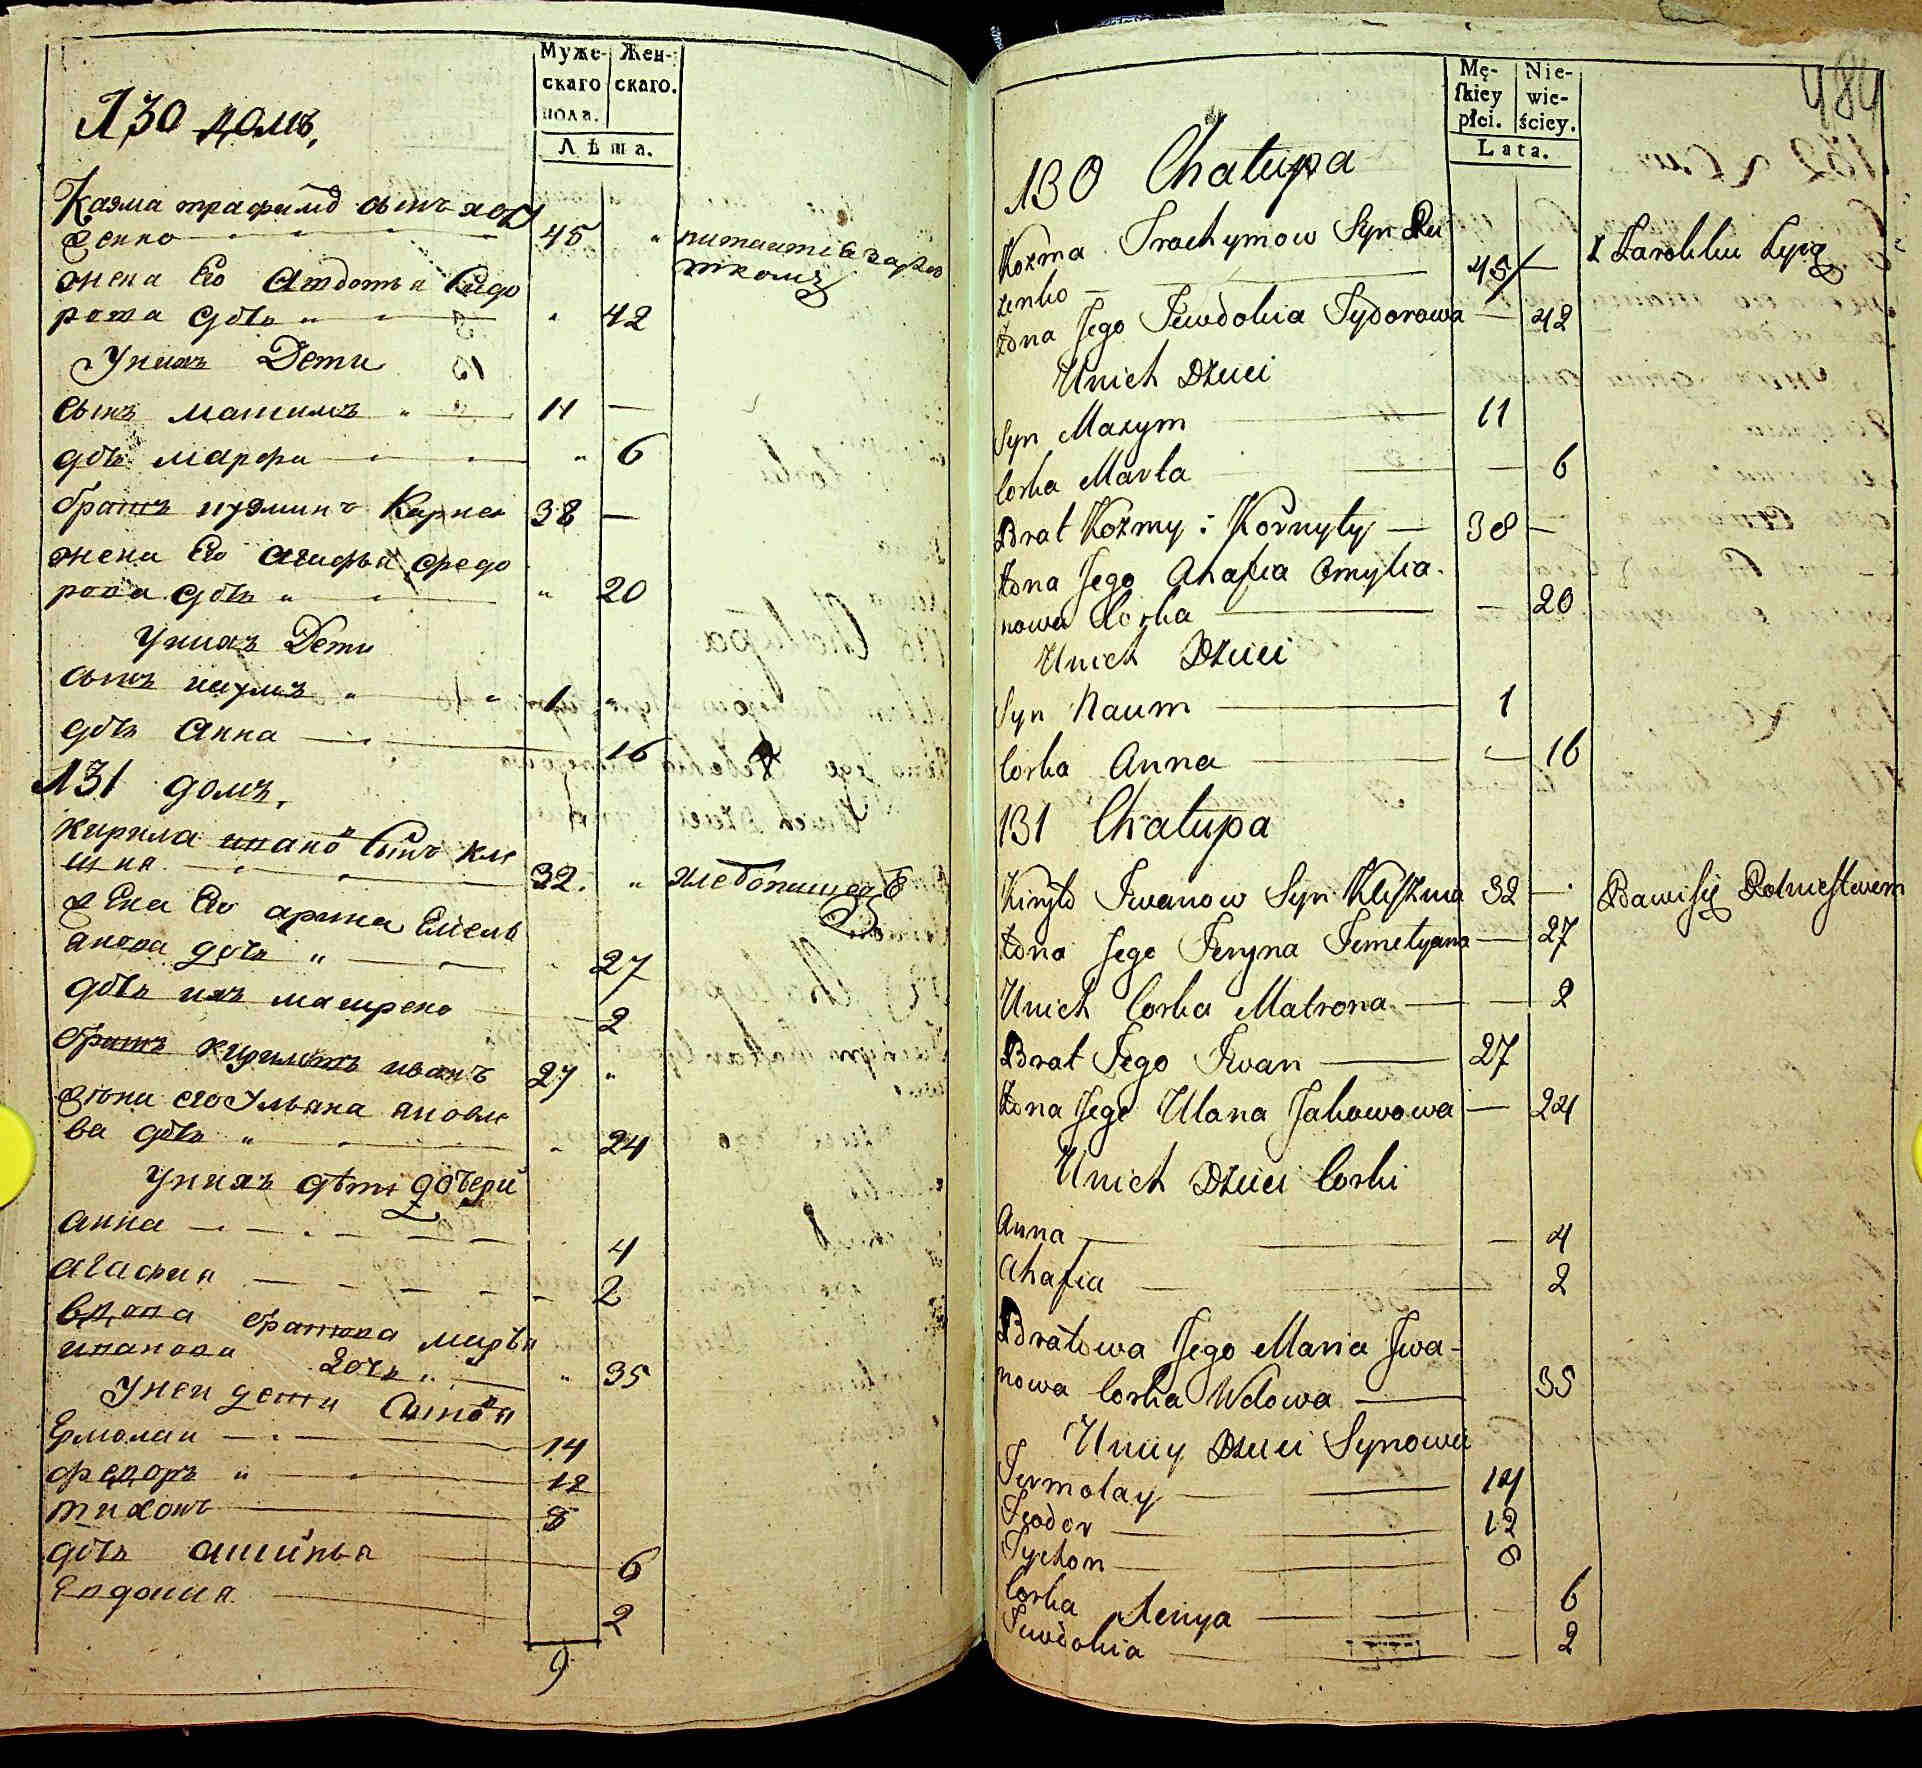 Муже-
скаго
пола.
Жен-
скаго.
Лѣта.
130 домъ.
Козма трафимо сынъ ход
зенко 45
жена его Авдотья Сидо
рова дочь 42
У них Дети
сынъ Максимъ 11
дочь марфа 6
братъ кузминъ Карней 38
жена его агафья
рова дочь 20
У них Дети
сынъ наумъ 1
дочь Анна 16
131 домъ.
Кирила ивано сынъ Кле
шня 32. хлебопашед
жена его арина Емель
янова дочь 27
дочь их матрена 2
братъ кириловъ иванъ 27
жена его Ульяна яковле
ва дочь 24
У них дети дочери
анна 4
агафия 2
вдова братова марья
иванова дочь 35
У неи дети сыновя
Ермолаи 14
федоръ 12
тихонъ 8
дочь аксинья 6
Евдокия 2
9
Mę-
skiey
płci.
Nie-
wie-
ściey.
Lata.
484
130 Chałupa
Kozma Trochymow Syn
zenko 45 Z Zarobku żyią
Żona Jego Jewdokia Sydorowa 42
U nich Dzieci
Syn Maxym 11
Corka Marta 6
Brat Kozmy: Kornyły 38
Żona Jego Ahafia Omylia-
nowa Corka 20
U nich Dzieci
Syn Naum 1
Corka Anna 16
131 Chałupa
Kiryło Jwanow Syn Klisznia 32 Bawi się Rolnictwem
Żona Jego Jeryna Jemelyana 27
U nich Corka Matrona 2
Brat Jego Jwan 27
Żona Jego Ulana Jakowowa 24
U nich Dzieci Corki
Anna 4
Ahafia 2
Bratowa Jego Maria Jwa-
nowa Corka Wdowa 35
U niey Dzieci Synowie
Jermołay 14
Feodor 12
Tychon 8
Corka Xenya 6
Jewdokia 2